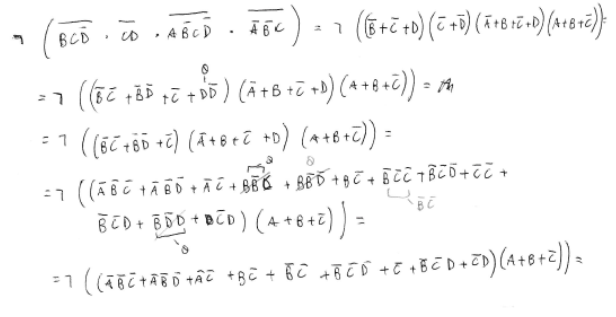 ¬ ( \overline{BC\overline{D}} · \overline{\overline{C}D} · \overline{A\overline{B}C\overline{D}} · \overline{\overline{A}\,\overline{B}C} ) = ¬ ((B̅+C̅+D)(C̅+D̅)(A̅+B+C̅+D)(A+B+C̅))=
= ¬ ((B̅C̅ +B̅D̅ +C̅ + DD̅) (A̅+B+C̅+D)(A+B+C̅)) =
= ¬ ((B̅C̅+B̅D̅+C̅) (A̅+B+C̅+D) (A+B+C̅)) =
= ¬ ((A̅B̅C̅ + A̅B̅D̅ + A̅C̅ + BB̅C̅ + BB̅D̅ + BC̅ + B̅C̅C̅ + B̅C̅D̅ + C̅C̅ +
B̅C̅D + B̅D̅D + C̅D) (A+B+C̅)) =
= ¬ ((A̅B̅C̅+A̅B̅D̅+A̅C̅ + BC̅ + B̅C̅ + B̅C̅D̅ + C̅ + B̅C̅D + C̅D)(A+B+C̅)) =